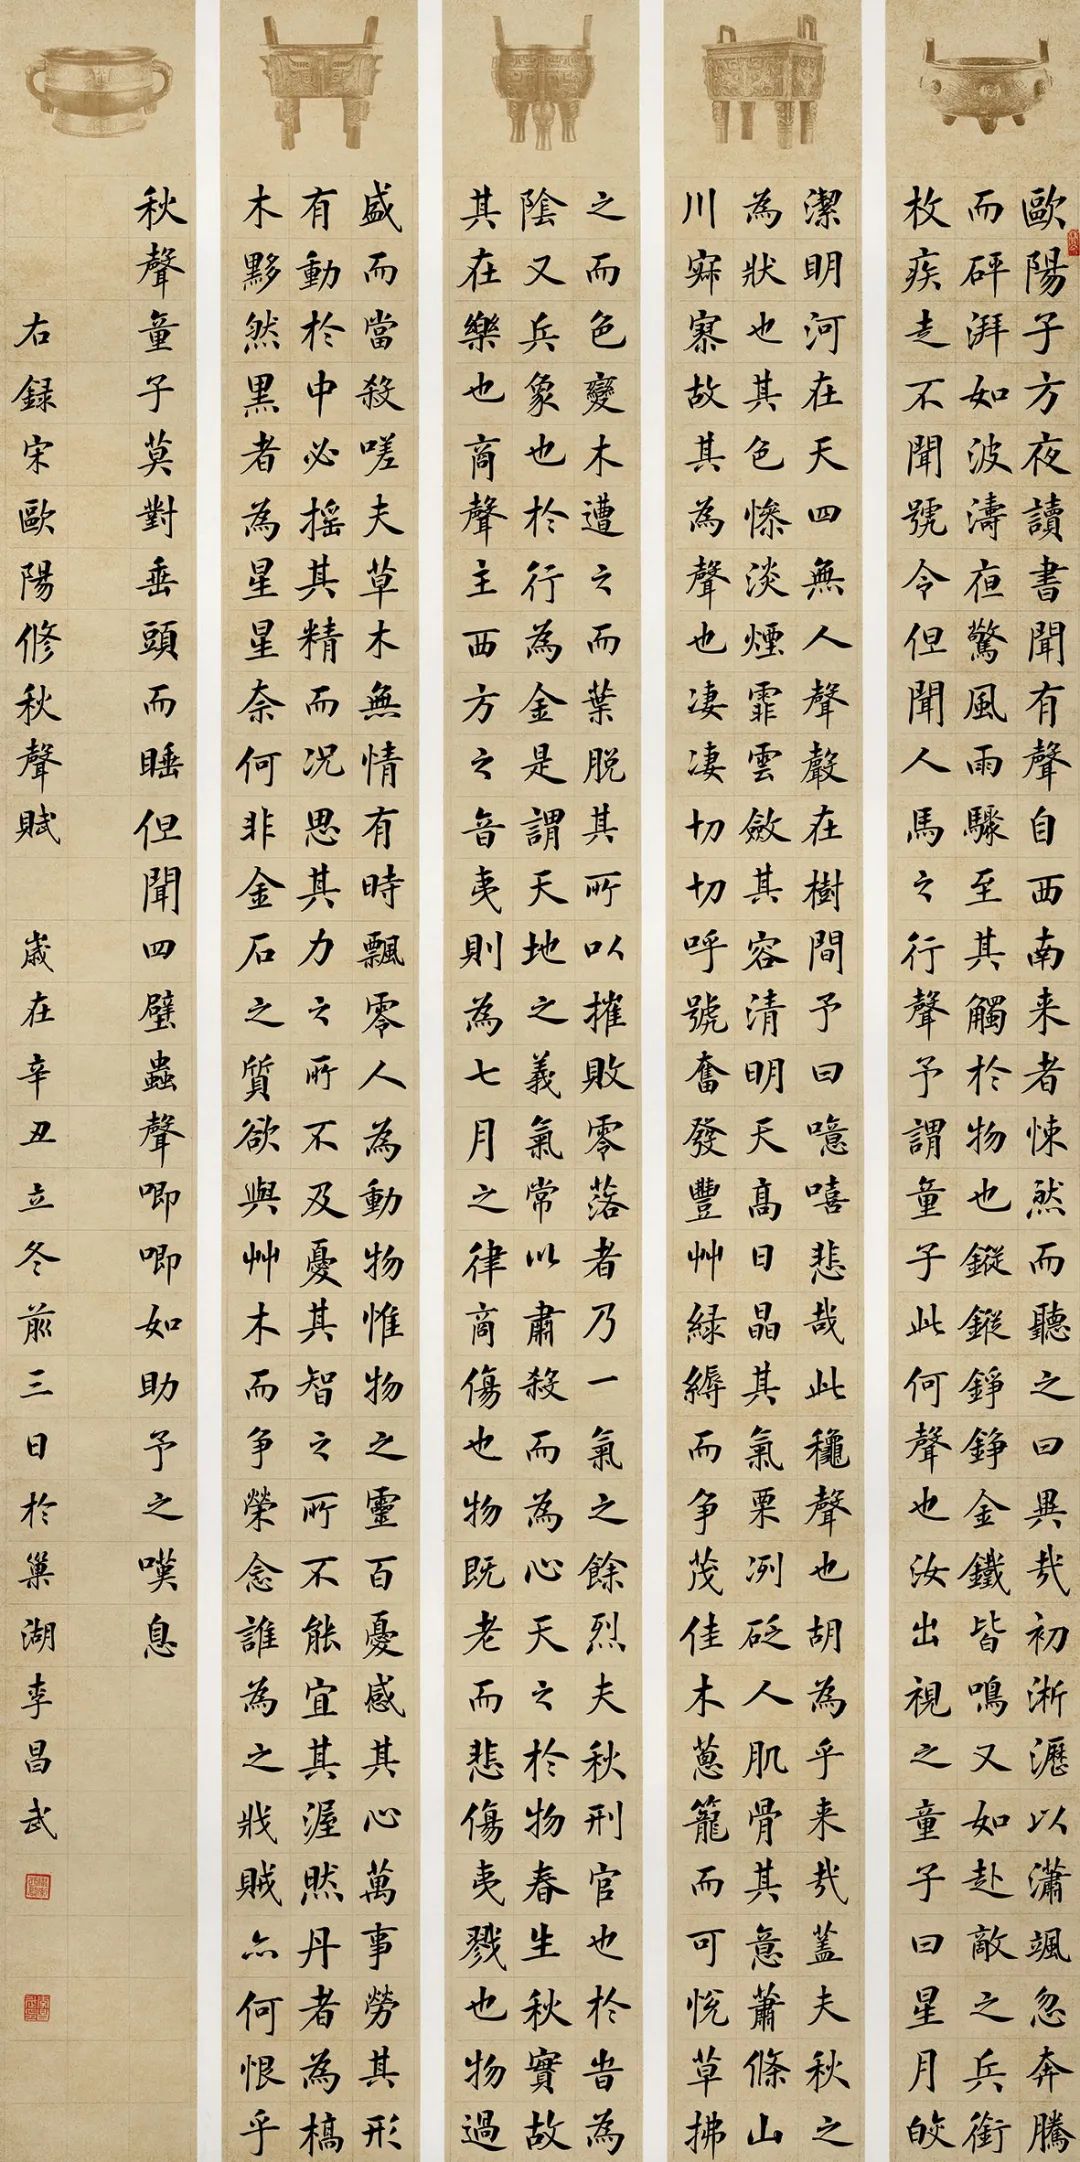 歐陽子方夜讀書聞有聲自西南来者悚然而聽之曰異哉初淅瀝以瀟颯忽奔騰
而砰湃如波濤夜驚風雨驟至其觸於物也鏦鏦錚錚金鐵皆鳴又如赴敵之兵銜
枚疾走不聞號令但聞人馬之行聲予謂童子此何聲也汝出視之童子曰星月皎
潔明河在天四無人聲聲在樹間予曰噫嘻悲哉此穐聲也胡為乎来哉蓋夫秋之
為狀也其色慘淡煙霏雲斂其容清明天高日晶其氣栗冽砭人肌骨其意蕭條山
川寂寥故其為聲也凄凄切切呼號奮發豐艸緑縟而争茂佳木蔥籠而可悅草拂
之而色變木遭之而葉脱其所以摧敗零落者乃一氣之餘烈夫秋刑官也於旹為
陰又兵象也於行為金是謂天地之義氣常以肅殺而為心天之於物春生秋實故
其在樂也商聲主西方之音夷則為七月之律商傷也物既老而悲傷夷戮也物過
盛而當殺嗟夫草木無情有時飄零人為動物惟物之靈百憂感其心萬事勞其形
有動於中必摇其精而况思其力之所不及憂其智之所不能宜其渥然丹者為槁
木黟然黑者為星星奈何非金石之質欲與艸木而争榮念誰為之戕賊亦何恨乎
秋聲童子莫對垂頭而睡但聞四壁蟲聲唧唧如助予之嘆息
右録宋歐陽修秋聲賦 歲在辛丑立冬前三日於巢湖李昌武